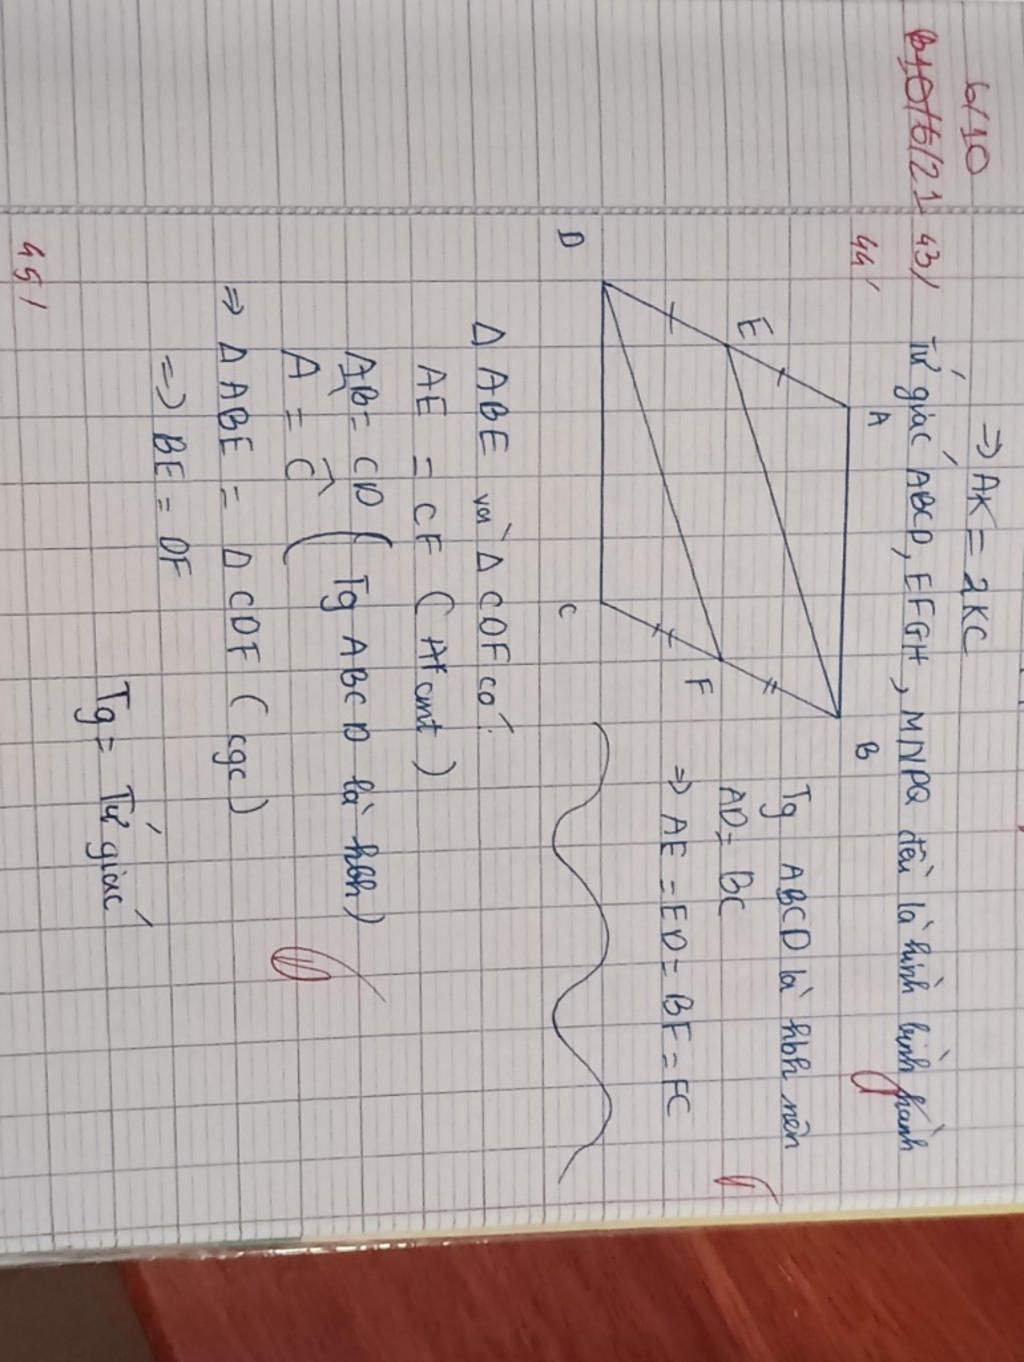 ⇒ AK = 2KC
6/10
43/ Tứ giác ABCD, EFGH, MNPQ đều là hình bình hành
44/
A
B
E
F
D
C
Tg ABCD là hbh nên
AD = BC
⇒ AE = ED = BF = FC
Δ ABE và Δ CDF có:
AE = CF ( cmt )
AB = CD ( Tg ABCD là hbh )
Â = Ĉ (
⇒ Δ ABE = Δ CDF ( cgc )
⇒ BE = DF
Tg = Tứ giác
45/